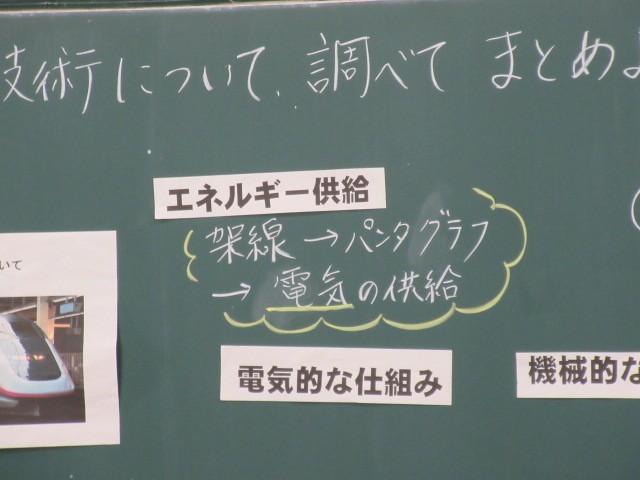 技術について、調べて まとめよ
エネルギー供給
架線→パンタグラフ
→電気の供給
いて
電気的な仕組み
機械的な